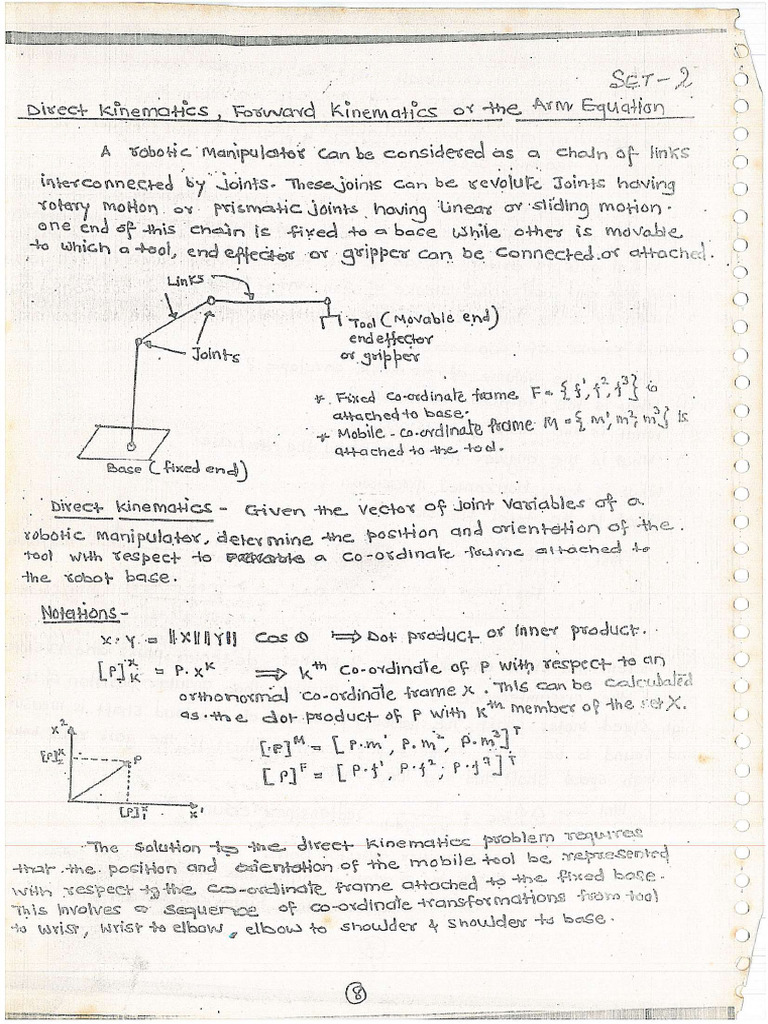 SET-2
Direct Kinematics, Forward Kinematics or the Arm Equation
A robotic Manipulator can be considered as a chain of links
interconnected by joints. These joints can be revolute Joints having
rotary motion or prismatic joints, having linear or sliding motion.
one end of this chain is fixed to a bace while other is movable
to which a tool, end effector or gripper can be connected or attached.
Links
Tool (Movable end)
end effector
or gripper
Joints
* Fixed co-ordinate frame F = {f¹, f², f³} is
attached to base.
* Mobile-co-ordinate frame M = {m¹, m², m³} is
attached to the tool.
Base (fixed end)
Direct Kinematics - Given the vector of joint variables of a
robotic manipulator, determine the position and orientation of the
tool with respect to a co-ordinate frame attached to
the robot base.
Notations -
X·Y = ||X|| ||Y|| Cos θ ⟹ Dot product or inner product.
[P]ˣₖ = P·xᵏ ⟹ kᵗʰ co-ordinate of P with respect to an
orthonormal co-ordinate frame X. This can be calculated
as the dot product of P with kᵗʰ member of the set X.
[P]ᴹ = [P·m¹, P·m², P·m³]ᵀ
[P]ꟳ = [P·f¹, P·f², P·f³]ᵀ
x²
[P]ˣ₂
P
[P]ˣ₁
x¹
The solution to the direct kinematics problem requires
that the position and orientation of the mobile tool be represented
with respect to the co-ordinate frame attached to the fixed base.
This involves a sequence of co-ordinate transformations from tool
to wrist, wrist to elbow, elbow to shoulder & shoulder to base.
8